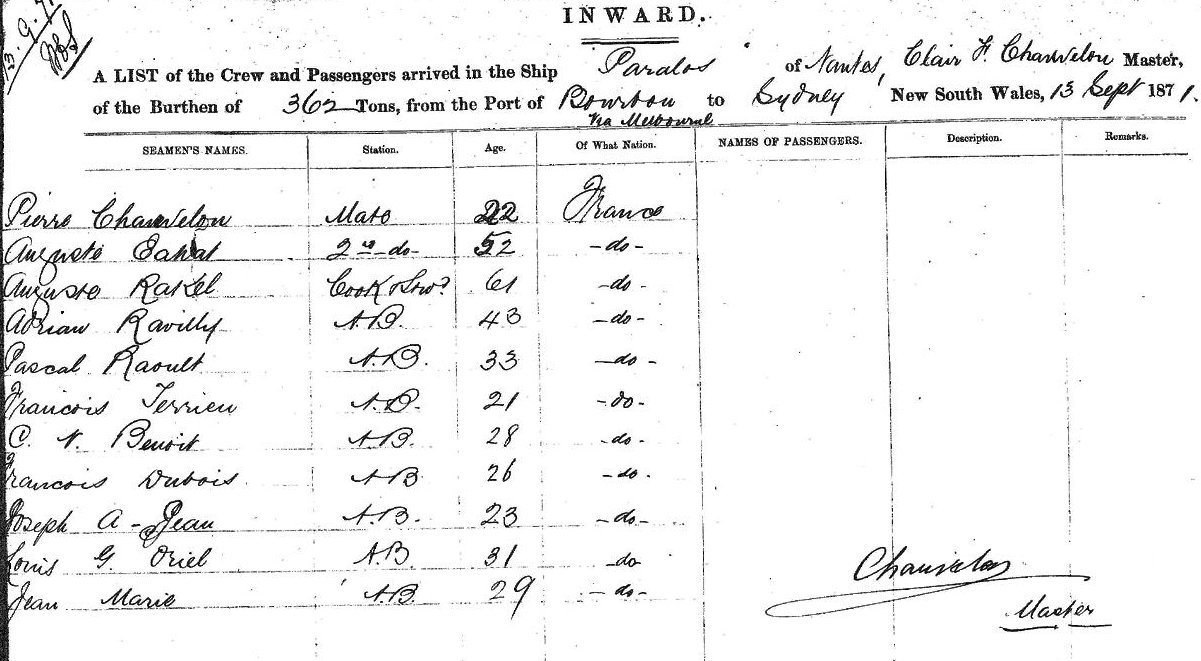 13.9.71
INWARD.
A LIST of the Crew and Passengers arrived in the Ship Paralos of Nantes, Clair F. Chauvelon Master,
of the Burthen of 362 Tons, from the Port of Bourbon to Sydney New South Wales, 13 Sept 1871.
Via Melbourne
SEAMEN'S NAMES. Station. Age. Of What Nation. NAMES OF PASSENGERS. Description. Remarks.
Pierre Chauvelon Mate 22 France
Auguste 2nd -do- 52 -do-
Auguste Cook & Stewd 61 -do-
Adrian Ravilly A.B. 43 -do-
Pascal Raoult A.B. 33 -do-
Francois Terrien A.B. 21 -do-
C. N. Benoit A.B. 28 -do-
Francois Dubois A.B 26 -do-
Joseph A - Jean A.B. 23 -do-
Louis G. Oriel A.B. 31 -do-
Jean Marie A.B. 29 -do-
Chauvelon
Master